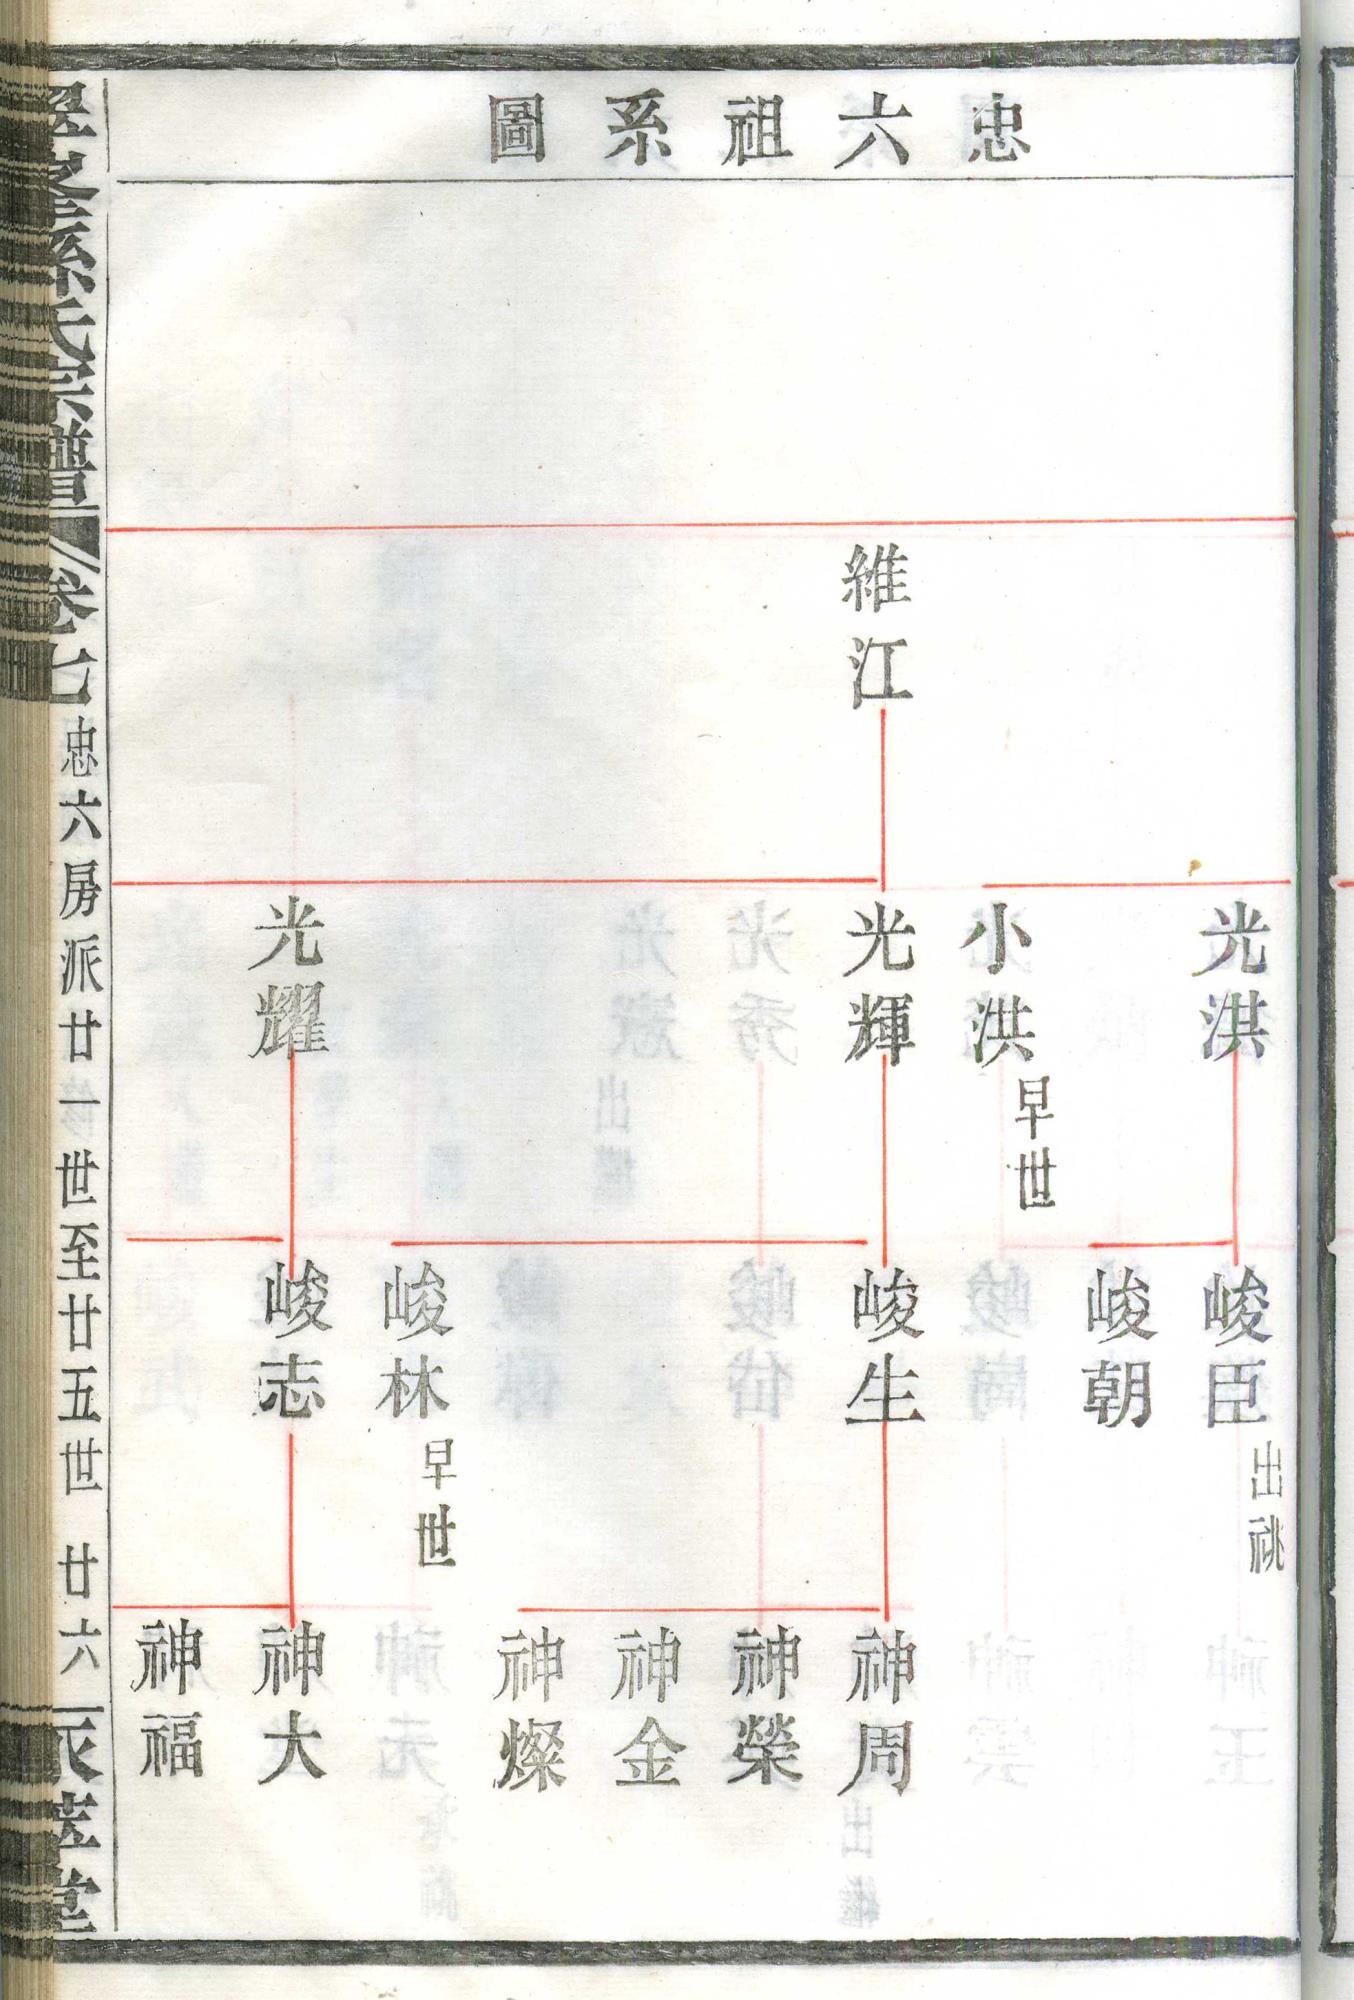 忠六祖系圖
維江
光洪
小洪
早世
光輝
光耀
峻臣
出祧
峻朝
峻生
峻林
早世
峻志
神周
神榮
神金
神燦
神大
神福
孫氏宗譜
卷七
忠六房派廿一世至廿五世
廿六
堂